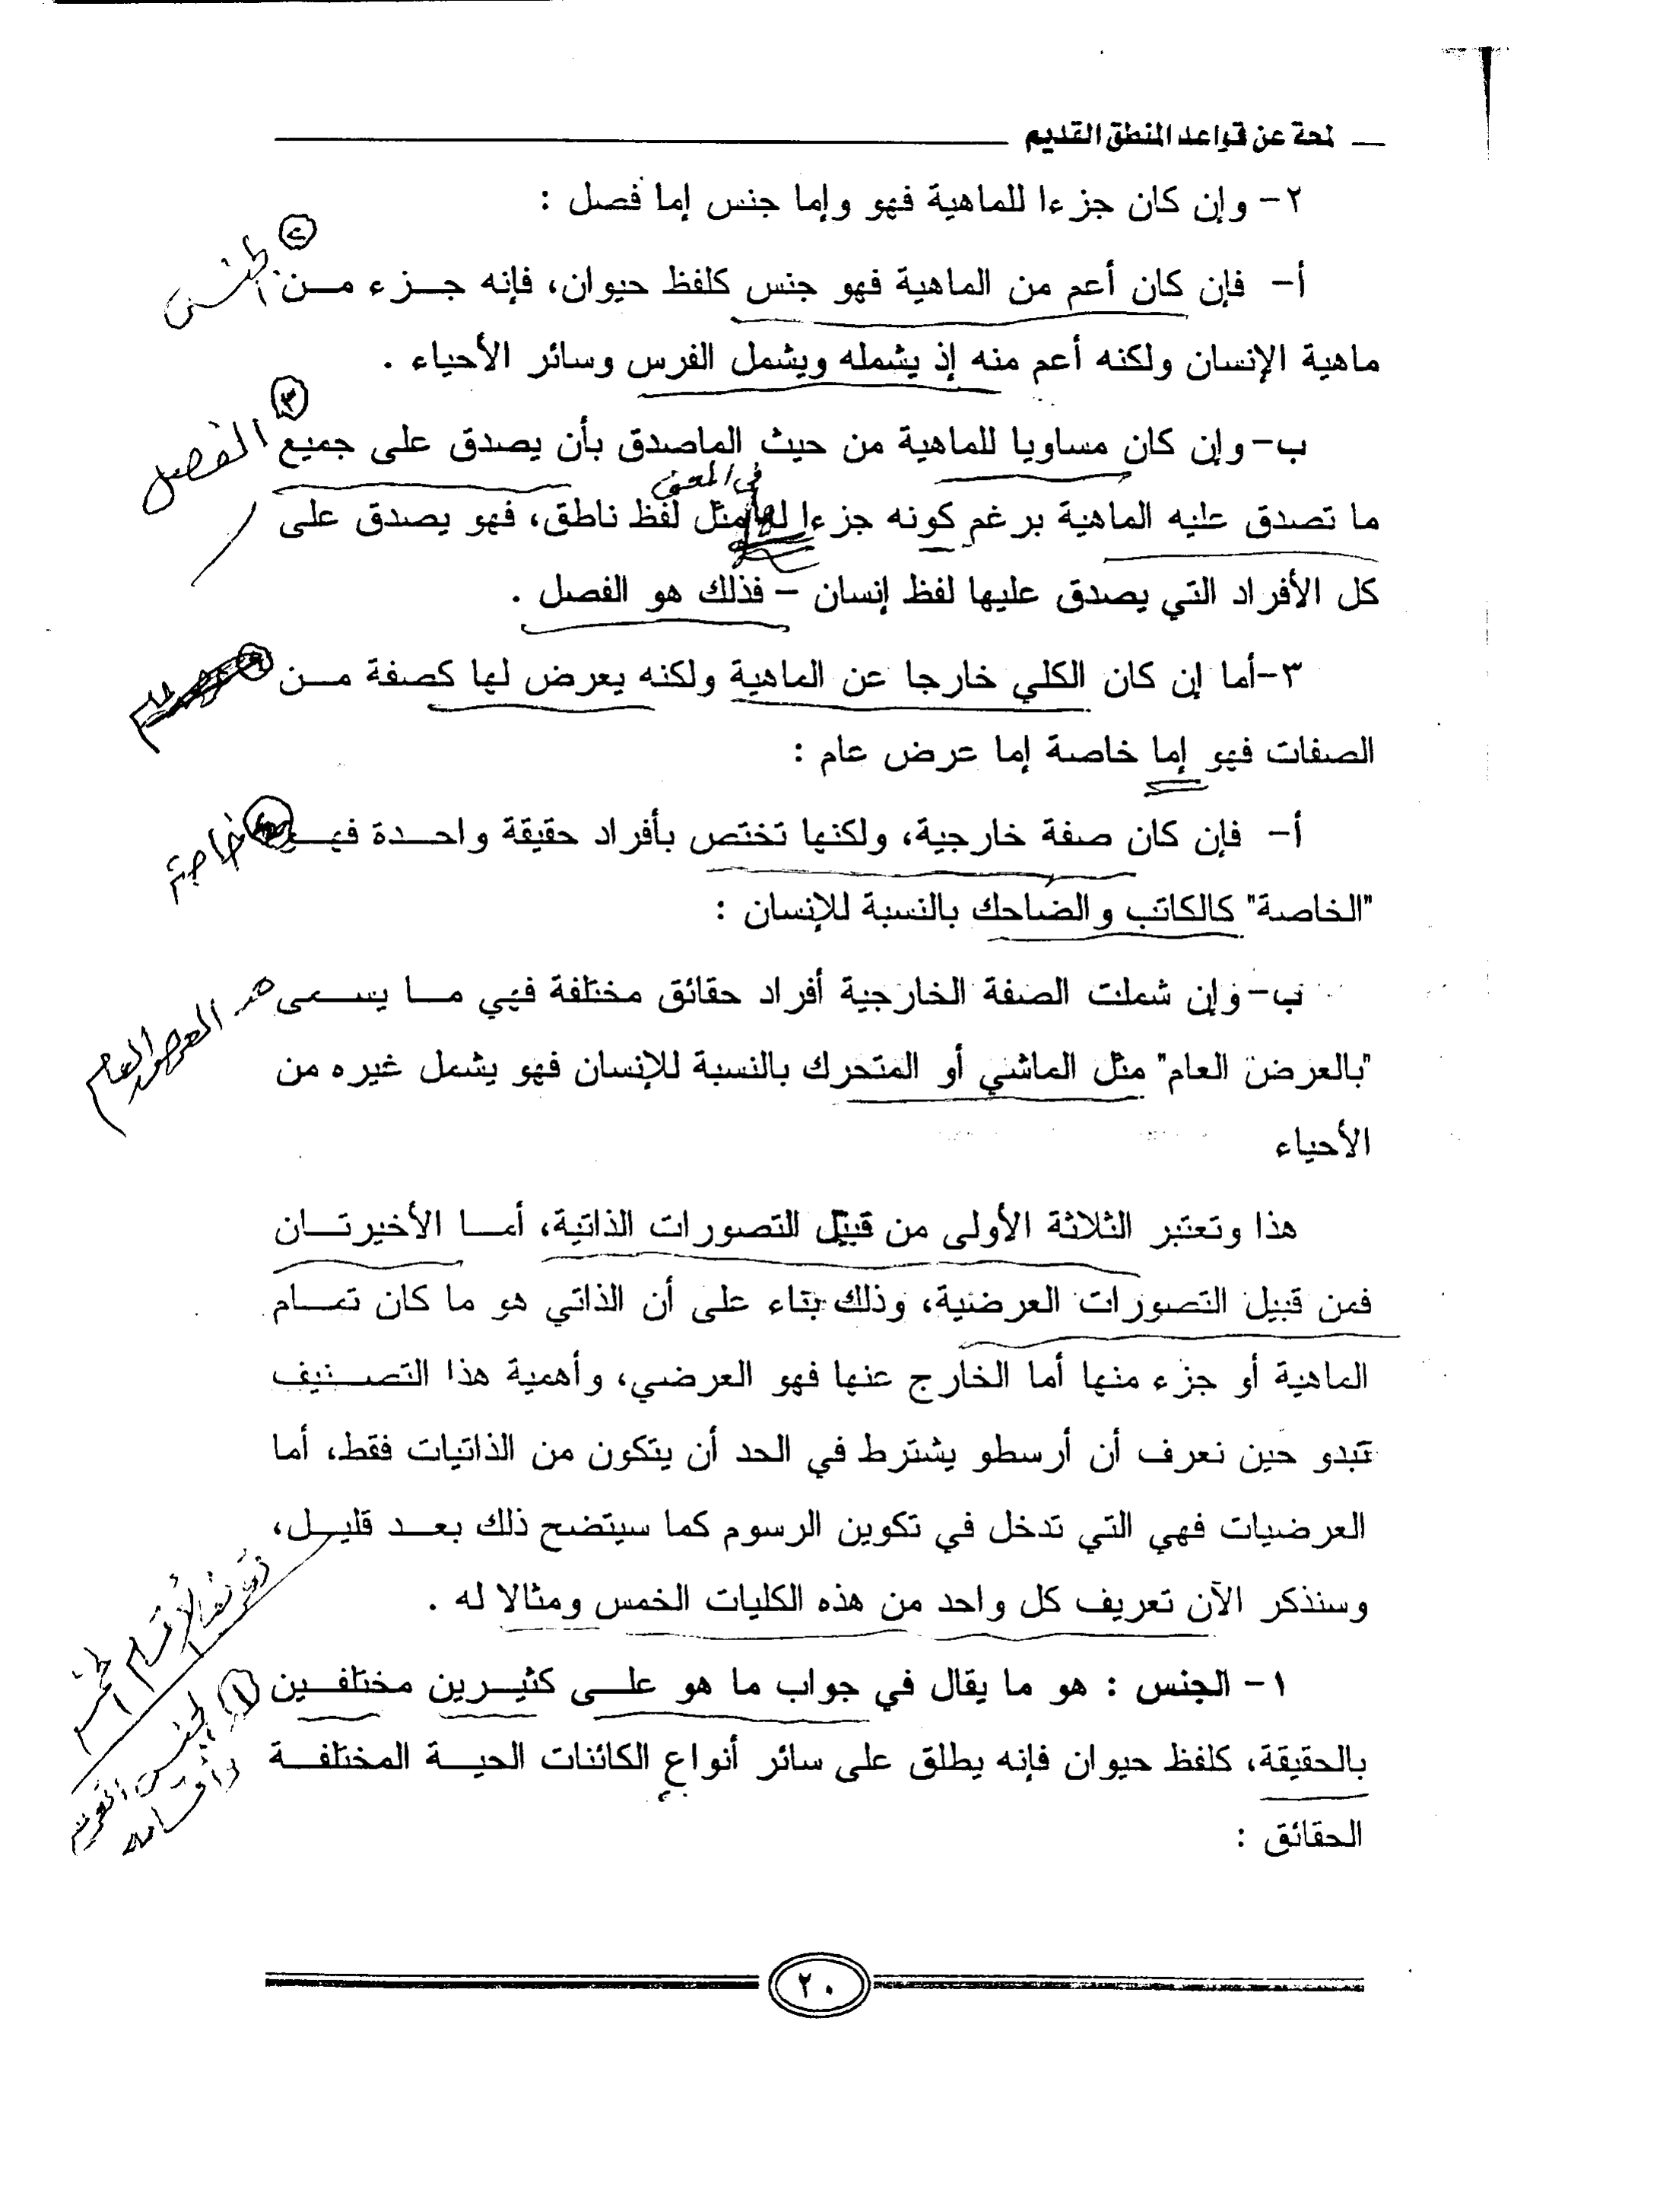 لمحة عن قواعد المنطق القديم
٢- وإن كان جزءا للماهية فهو وإما جنس إما فصل :
٢
الجنس
أ- فإن كان أعم من الماهية فهو جنس كلفظ حيوان، فإنه جزء من
ماهية الإنسان ولكنه أعم منه إذ يشمله ويشمل الفرس وسائر الأحياء .
٣
الفصل
ب- وإن كان مساويا للماهية من حيث الماصدق بأن يصدق على جميع
في المعنى
ما تصدق عليه الماهية برغم كونه جزءا لها مثل لفظ ناطق، فهو يصدق على
كل الأفراد التي يصدق عليها لفظ إنسان – فذلك هو الفصل .
٣-أما إن كان الكلي خارجا عن الماهية ولكنه يعرض لها كصفة من
الصفات فهو إما خاصة إما عرض عام :
خاصة
أ- فإن كان صفة خارجية، ولكنها تختص بأفراد حقيقة واحدة فهي
"الخاصة" كالكاتب والضاحك بالنسبة للإنسان :
العرض العام
ب- وإن شملت الصفة الخارجية أفراد حقائق مختلفة فهي ما يسمى
"بالعرض العام" مثل الماشي أو المتحرك بالنسبة للإنسان فهو يشمل غيره من
الأحياء
هذا وتعتبر الثلاثة الأولى من قبيل التصورات الذاتية، أما الأخيرتان
فمن قبيل التصورات العرضية، وذلك بناء على أن الذاتي هو ما كان تمام
الماهية أو جزء منها أما الخارج عنها فهو العرضي، وأهمية هذا التصنيف
تبدو حين نعرف أن أرسطو يشترط في الحد أن يتكون من الذاتيات فقط، أما
العرضيات فهي التي تدخل في تكوين الرسوم كما سيتضح ذلك بعد قليل،
وسنذكر الآن تعريف كل واحد من هذه الكليات الخمس ومثالا له .
١- الجنس : هو ما يقال في جواب ما هو على كثيرين مختلفين
بالحقيقة، كلفظ حيوان فإنه يطلق على سائر أنواع الكائنات الحية المختلفة
الحقائق :
١
٢٠